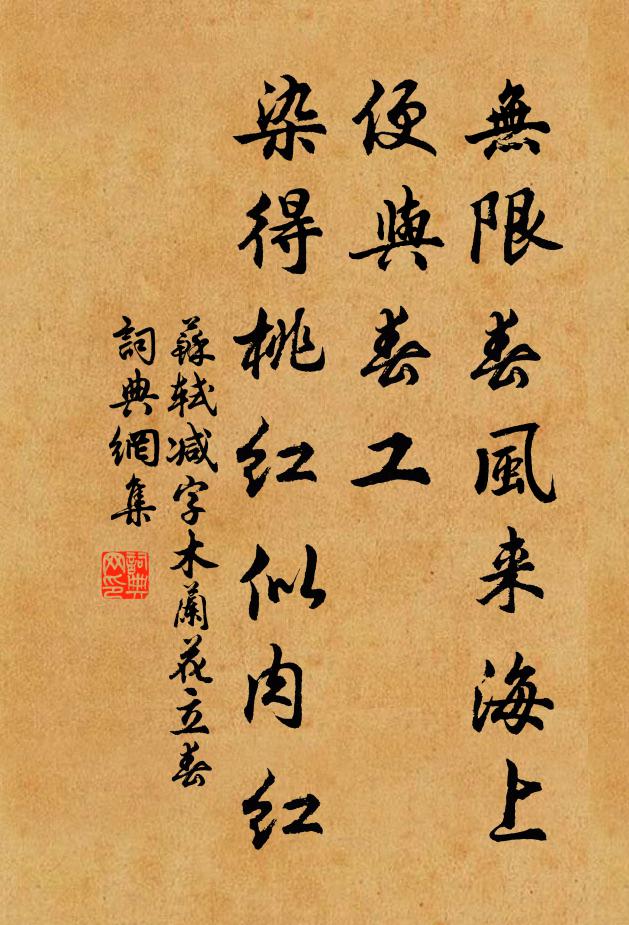 無限春風来海上
便與春工
染得桃紅似肉紅
蘇軾减字木蘭花立春
詞典網集
詞典网印